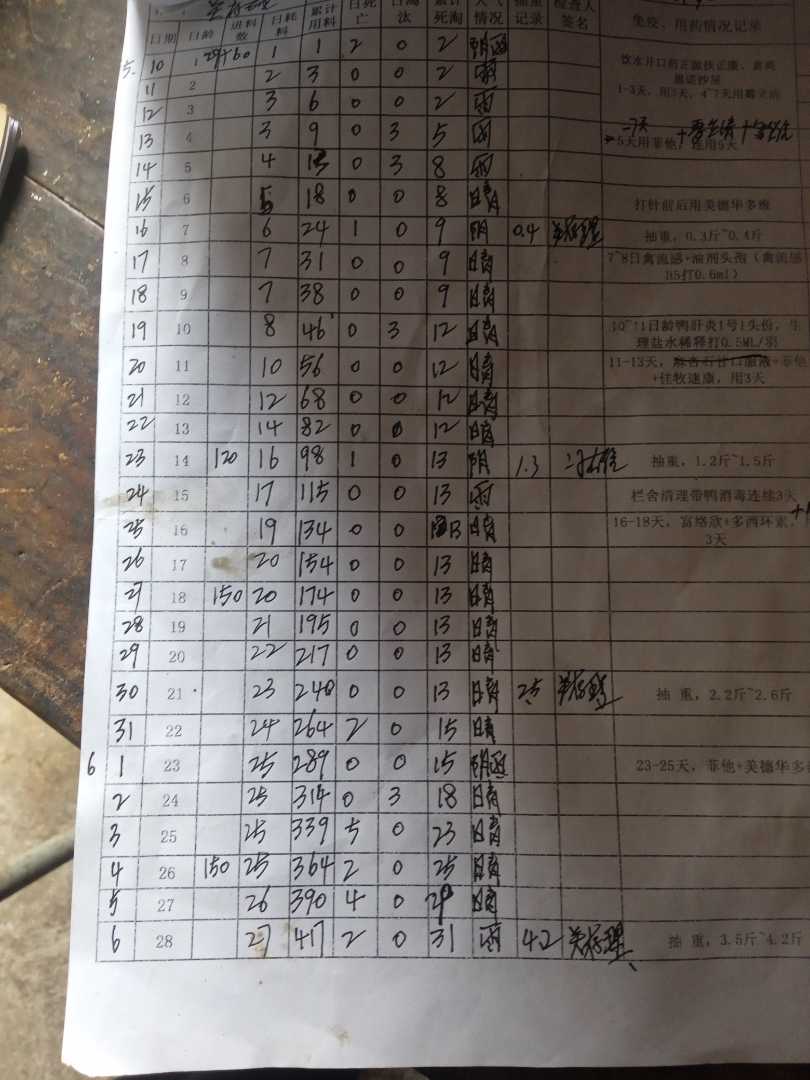 日期 日龄 进料数 日耗料 累计用料 日死亡 日淘汰 累计死淘 天气情况 抽重记录 检查人签名 免疫、用药情况记录
5. 10 1 1 1 2 0 2 阴雨
饮水开口前
11 2 2 3 0 0 2 雨
1-3天，用3天，4~7天用
12 3 3 6 0 0 2 雨
13 4 3 9 0 3 5 雨
5天用菲他，连用5天
14 5 4 13 0 3 8 雨
15 6 5 18 0 0 8 晴 打针前后用美德华多维
16 7 6 24 1 0 9 阴 0.4 抽重，0.3斤~0.4斤
17 8 7 31 0 0 9 晴 7~8日禽流感+油剂头孢（禽流感H5打0.6ml）
18 9 7 38 0 0 9 晴
19 10 8 46 0 3 12 晴 10~11日龄鸭肝炎1号1头份，生理盐水稀释打0.5ML/羽
20 11 10 56 0 0 12 晴 11-13天，麻杏石甘口服液+菲他+佳牧速康，用3天
21 12 12 68 0 0 12 晴
22 13 14 82 0 0 12 晴
23 14 120 16 98 1 0 13 阴 1.3 抽重，1.2斤~1.5斤
24 15 17 115 0 0 13 雨 栏舍清理带鸭消毒连续3天
25 16 19 134 0 0 13 晴 16-18天，富络欣+多西环素，3天
26 17 20 154 0 0 13 晴
27 18 150 20 174 0 0 13 晴
28 19 21 195 0 0 13 晴
29 20 22 217 0 0 13 晴
30 21 23 240 0 0 13 晴 2.5 抽 重，2.2斤~2.6斤
31 22 24 264 2 0 15 晴
6 1 23 25 289 0 0 15 阴雨 23-25天，菲他+美德华多
2 24 25 314 0 3 18 晴
3 25 25 339 5 0 23 晴
4 26 150 25 364 2 0 25 晴
5 27 26 390 4 0 29 晴
6 28 27 417 2 0 31 雨 4.2 抽 重，3.5斤~4.2斤